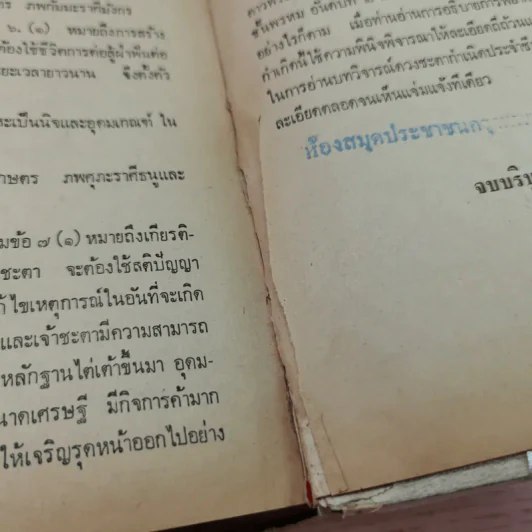 ภพกัมมะราศีมังกร
๖. (๑) หมายถึงการสร้าง
ต้องใช้ชีวิตการต่อสู้ฝ่าฟันต่อ
ยะเวลายาวนาน จึงตั้งตัว
ะเป็นนิจและอุดมเกณฑ์ ใน
ภพศุภะราศีธนูและ
มข้อ ๗ (๑) หมายถึงเกียรติ-
ชะตา จะต้องใช้สติปัญญา
ก้ไขเหตุการณ์ในอันที่จะเกิด
และเจ้าชะตามีความสามารถ
หลักฐานไต่เต้าขึ้นมา อุดม-
นาดเศรษฐี มีกิจการค้ามาก
ให้เจริญรุดหน้าออกไปอย่าง
ชั้นพรหม อันดับที่
อย่างไรก็ตาม เมื่อท่านอ่านการอธิบายการพย
กำเกิดนี้ใช้ความพินิจพิจารณาให้ละเอียดถี่ถ้วน
ในการอ่านบทวิจารณ์ดวงชะตากำเนิดประจำ
ละเอียดตลอดจนเห็นแจ่มแจ้งทีเดียว
ห้องสมุดประชาชน
จบบริบ